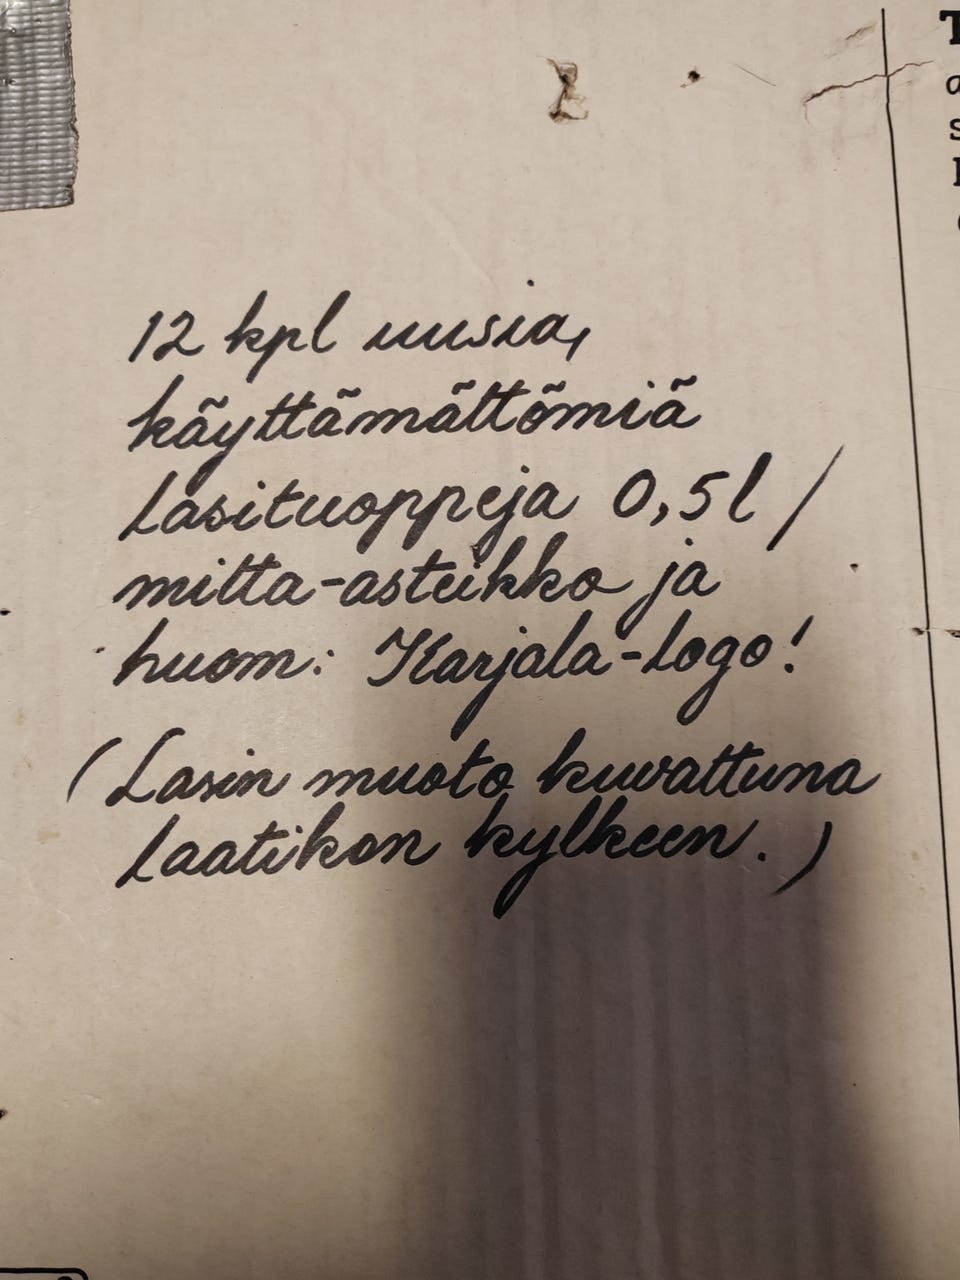 12 kpl uusia,
käyttämättömiä
lasituoppeja 0,5 l /
mitta-asteikko ja
huom: Karjala-logo!
(Lasin muoto kuvattuna
laatikon kylkeen.)